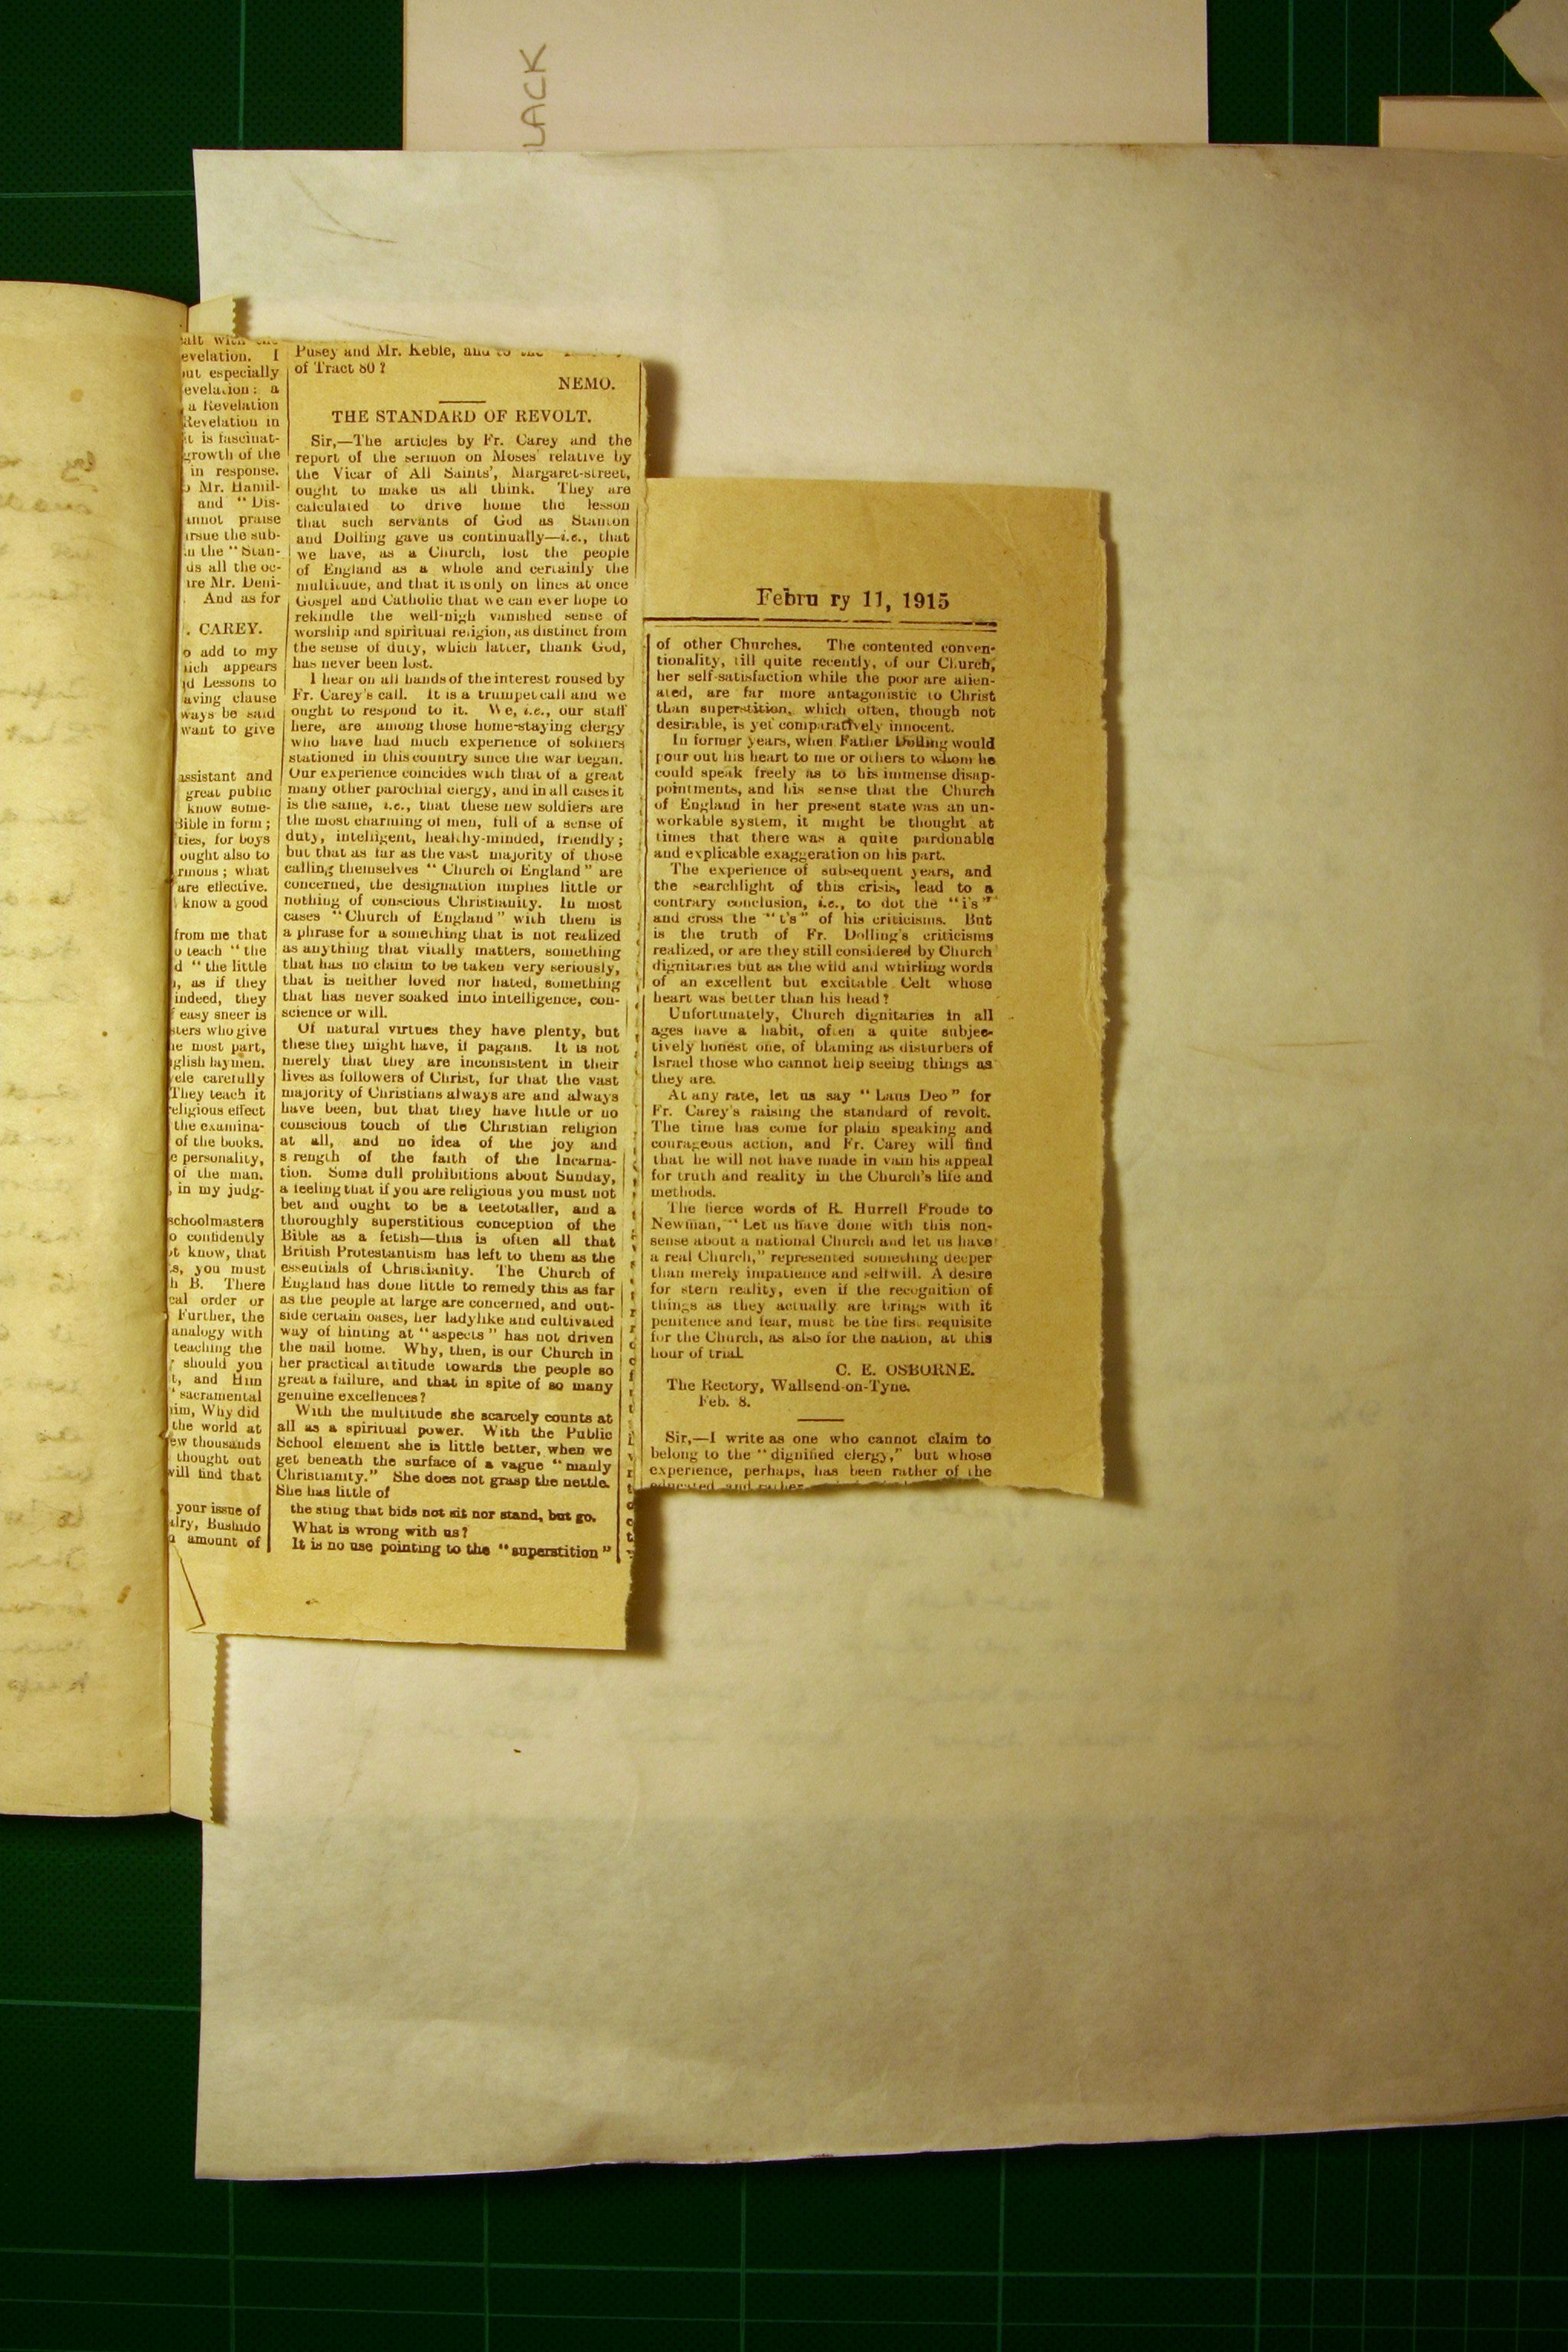 LACK
alt with
evelation. I
out especially
evelation: a
a Revelation
Revelation in
it is fascinat-
growth of the
in response.
Mr. Hamil-
and "Dis-
annot praise
ursue the sub-
in the "Stan-
ds all the oc-
ire Mr. Deni-
And as for
. CAREY.
o add to my
hich appears
d Lessons to
aving clause
ways be said
want to give
assistant and
great public
know some-
Bible in form;
ties, for boys
ought also to
rmons; what
are effective.
know a good
from me that
o teach "the
d "the little
, as if they
indeed, they
f easy sneer is
sters who give
he most part,
glish laymen.
ele carefully
They teach it
eligious effect
the examina-
of the books.
e personality,
of the man.
, in my judg-
schoolmasters
o confidently
ot know, that
s, you must
h B. There
cal order or
Further, the
analogy with
teaching the
should you
t, and Him
"sacramental
him, Why did
the world at
ew thousands
thought out
will find that
your issue of
alry, Bushido
amount of
Pusey and Mr. Keble, and to the
of Tract 80?
NEMO.
THE STANDARD OF REVOLT.
Sir,—The articles by Fr. Carey and the
report of the sermon on Moses' relative by
the Vicar of All Saints', Margaret-street,
ought to make us all think. They are
calculated to drive home the lesson
that such servants of God as Stanton
and Dolling gave us continually—i.e., that
we have, as a Church, lost the people
of England as a whole and certainly the
multitude, and that it is only on lines at once
Gospel and Catholic that we can ever hope to
rekindle the well-nigh vanished sense of
worship and spiritual religion, as distinct from
the sense of duty, which latter, thank God,
has never been lost.
I hear on all hands of the interest roused by
Fr. Carey's call. It is a trumpet call and we
ought to respond to it. We, i.e., our staff
here, are among those home-staying clergy
who have had much experience of soldiers
stationed in this country since the war began.
Our experience coincides with that of a great
many other parochial clergy, and in all cases it
is the same, i.e., that these new soldiers are
the most charming of men, full of a sense of
duty, intelligent, healthy-minded, friendly;
but that as far as the vast majority of those
calling themselves "Church of England" are
concerned, the designation implies little or
nothing of conscious Christianity. In most
cases "Church of England" with them is
a phrase for a something that is not realized
as anything that vitally matters, something
that has no claim to be taken very seriously,
that is neither loved nor hated, something
that has never soaked into intelligence, con-
science or will.
Of natural virtues they have plenty, but
these they might have, if pagans. It is not
merely that they are inconsistent in their
lives as followers of Christ, for that the vast
majority of Christians always are and always
have been, but that they have little or no
conscious touch of the Christian religion
at all, and no idea of the joy and
s rength of the faith of the Incarna-
tion. Some dull prohibitions about Sunday,
a feeling that if you are religious you must not
bet and ought to be a teetotaller, and a
thoroughly superstitious conception of the
Bible as a fetish—this is often all that
British Protestantism has left to them as the
essentials of Christianity. The Church of
England has done little to remedy this as far
as the people at large are concerned, and out-
side certain oases, her ladylike and cultivated
way of hinting at "aspects" has not driven
the nail home. Why, then, is our Church in
her practical attitude towards the people so
great a failure, and that in spite of so many
genuine excellences?
With the multitude she scarcely counts at
all as a spiritual power. With the Public
School element she is little better, when we
get beneath the surface of a vague "manly
Christianity." She does not grasp the nettle.
She has little of
the sting that bids not sit nor stand, but go.
What is wrong with us?
It is no use pointing to the "superstition"
Febru ry 11, 1915
of other Churches. The contented conven-
tionality, till quite recently, of our Church,
her self-satisfaction while the poor are alien-
ated, are far more antagonistic to Christ
than superstition, which often, though not
desirable, is yet comparatively innocent.
In former years, when Father Dolling would
pour out his heart to me or others to whom he
could speak freely as to his immense disap-
pointments, and his sense that the Church
of England in her present state was an un-
workable system, it might be thought at
times that there was a quite pardonable
and explicable exaggeration on his part.
The experience of subsequent years, and
the searchlight of this crisis, lead to a
contrary conclusion, i.e., to dot the "i's"
and cross the "t's" of his criticisms. But
is the truth of Fr. Dolling's criticisms
realized, or are they still considered by Church
dignitaries but as the wild and whirling words
of an excellent but excitable Celt whose
heart was better than his head?
Unfortunately, Church dignitaries in all
ages have a habit, often a quite subjec-
tively honest one, of blaming as disturbers of
Israel those who cannot help seeing things as
they are.
At any rate, let us say "Laus Deo" for
Fr. Carey's raising the standard of revolt.
The time has come for plain speaking and
courageous action, and Fr. Carey will find
that he will not have made in vain his appeal
for truth and reality in the Church's life and
methods.
The fierce words of R. Hurrell Froude to
Newman, "Let us have done with this non-
sense about a national Church and let us have
a real Church," represented something deeper
than merely impatience and selfwill. A desire
for stern reality, even if the recognition of
things as they actually are brings with it
penitence and fear, must be the first requisite
for the Church, as also for the nation, at this
hour of trial.
C. E. OSBORNE.
The Rectory, Wallsend-on-Tyne.
Feb. 8.
Sir,—I write as one who cannot claim to
belong to the "dignified clergy," but whose
experience, perhaps, has been rather of the
educated and rather